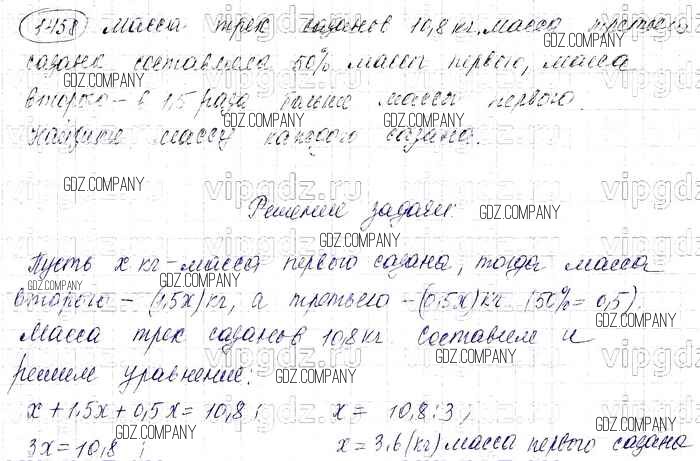 1458 Масса трех сазанов 10,8 кг. Масса третьего
сазана составляла 50% массы первого, масса
второго - в 1,5 раза больше массы первого.
Найдите массу каждого сазана.
Решение задачи:
Пусть х кг - масса первого сазана, тогда масса
второго - (1,5х) кг, а третьего - (0,5х) кг (50% = 0,5).
Масса трех сазанов 10,8 кг. Составим и
решим уравнение:
х + 1,5х + 0,5х = 10,8; х = 10,8:3;
3х = 10,8; х = 3,6 (кг) масса первого сазана